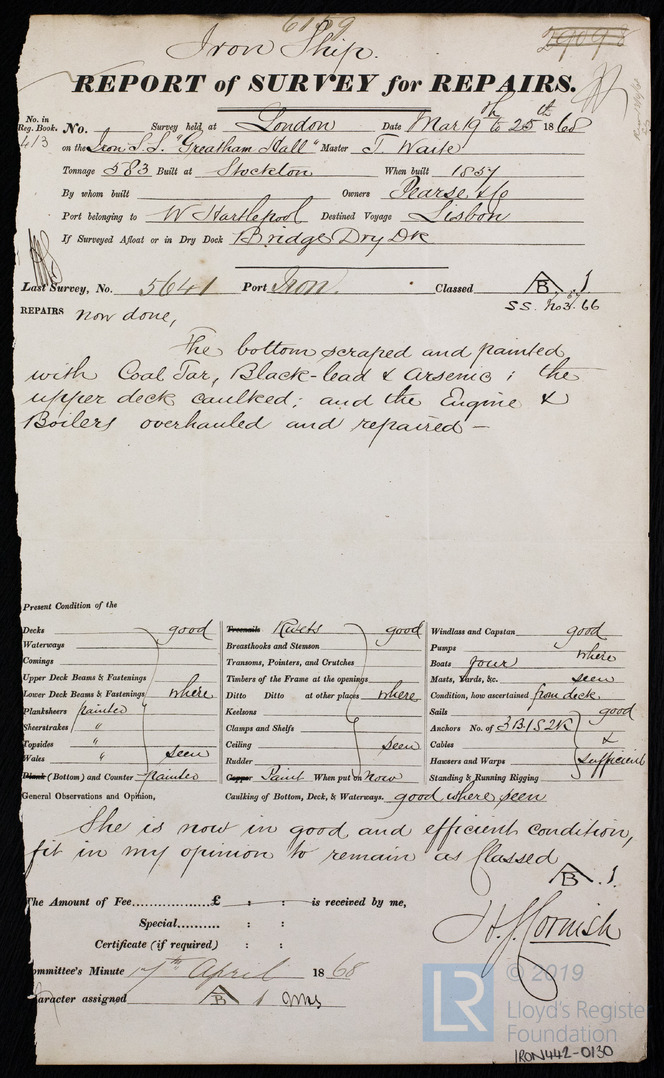 6159
29098
Iron Ship.
REPORT of SURVEY for REPAIRS.
No. in Reg. Book. No. Survey held at London Date Mar 19th to 25th 1868
413 on the Iron S.S. "Greatham Hall" Master T. Waite
Tonnage 583 Built at Stockton When built 1857
By whom built Owners Pearse & Co
Port belonging to W Hartlepool Destined Voyage Lisbon
If Surveyed Afloat or in Dry Dock Bridge Dry Dk
Last Survey, No. 5641 Port Iron. Classed B 1
S.S. No 3. 66
REPAIRS now done,
The bottom scraped and painted
with Coal Tar, Black-lead & Arsenic; the
upper deck caulked; and the Engine &
Boilers overhauled and repaired —
Present Condition of the
Decks good
Waterways
Comings
Upper Deck Beams & Fastenings
Lower Deck Beams & Fastenings where
Planksheers painted
Sheerstrakes "
Topsides "
Wales " seen
Plank (Bottom) and Counter painted
General Observations and Opinion,
Treenails Rivets good
Breasthooks and Stemson
Transoms, Pointers, and Crutches
Timbers of the Frame at the openings
Ditto Ditto at other places where
Keelsons
Clamps and Shelfs
Ceiling seen
Rudder
Copper Paint When put on now
Caulking of Bottom, Deck, & Waterways. good where seen
Windlass and Capstan good
Pumps where
Boats four
Masts, Yards, &c. seen
Condition, how ascertained from deck
Sails good
Anchors No. of 3B 1S 2K
Cables &
Hawsers and Warps sufficient
Standing & Running Rigging
She is now in good and efficient condition,
fit in my opinion to remain as Classed
B . 1.
The Amount of Fee £ : : is received by me,
Special : :
Certificate (if required) : :
H. J. Cornish
ommittee's Minute 17th April 1868
aracter assigned B 1
LR © 2019
Lloyd's Register
Foundation
IRON442-0130